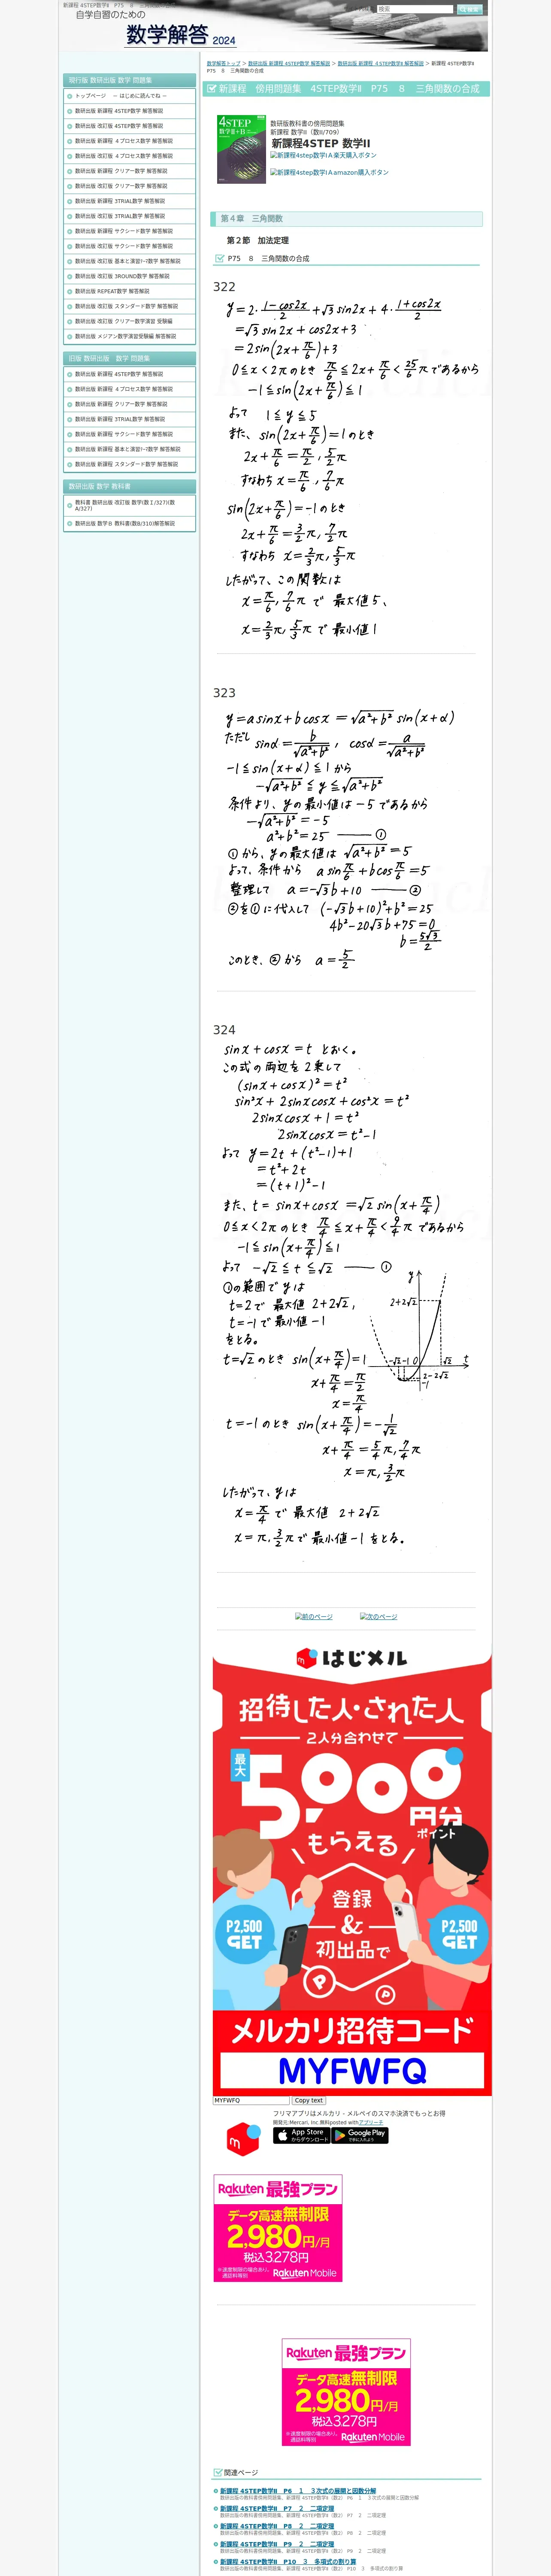 新課程 4STEP数学Ⅱ P75 8 三角関数の合成
自学自習のための
数学解答 2024
検索
検索
数学解答トップ > 数研出版 新課程 4STEP数学 解答解説 > 数研出版 新課程 4STEP数学Ⅱ 解答解説 > 新課程 4STEP数学Ⅱ
P75 8 三角関数の合成
現行版 数研出版 数学 問題集
トップページ − はじめに読んでね −
数研出版 新課程 4STEP数学 解答解説
数研出版 改訂版 4STEP数学 解答解説
数研出版 新課程 4プロセス数学 解答解説
数研出版 改訂版 4プロセス数学 解答解説
数研出版 新課程 クリアー数学 解答解説
数研出版 改訂版 クリアー数学 解答解説
数研出版 新課程 3TRIAL数学 解答解説
数研出版 改訂版 3TRIAL数学 解答解説
数研出版 新課程 サクシード数学 解答解説
数研出版 改訂版 サクシード数学 解答解説
数研出版 改訂版 基本と演習ﾃｰﾏ数学 解答解説
数研出版 改訂版 3ROUND数学 解答解説
数研出版 REPEAT数学 解答解説
数研出版 改訂版 スタンダード数学 解答解説
数研出版 改訂版 クリアー数学演習 受験編
数研出版 メジアン数学演習受験編 解答解説
旧版 数研出版 数学 問題集
数研出版 新課程 4STEP数学 解答解説
数研出版 新課程 4プロセス数学 解答解説
数研出版 新課程 クリアー数学 解答解説
数研出版 新課程 3TRIAL数学 解答解説
数研出版 新課程 サクシード数学 解答解説
数研出版 新課程 基本と演習ﾃｰﾏ数学 解答解説
数研出版 新課程 スタンダード数学 解答解説
数研出版 数学 教科書
教科書 数研出版 改訂版 数学Ⅰ(数Ⅰ/327)(数
A/327)
数研出版 数学B 教科書(数B/310)解答解説
新課程 傍用問題集 4STEP数学Ⅱ P75 8 三角関数の合成
4STEP
数学Ⅱ+B
数研版教科書の傍用問題集
新課程 数学II（数II/709）
新課程4STEP 数学II
新課程4step数学ⅠA楽天購入ボタン
新課程4step数学ⅠAamazon購入ボタン
第４章 三角関数
第２節 加法定理
P75 8 三角関数の合成
322
y=2・(1-cos2x)/2+√3sin2x+4・(1+cos2x)/2
=√3sin2x+cos2x+3
=2sin(2x+π/6)+3
0≦x<2πのとき π/6≦2x+π/6<25/6πであるから
-1≦sin(2x+π/6)≦1
よって 1≦y≦5
また、sin(2x+π/6)=1のとき
2x+π/6=π/2, 5/2π
すなわち x=π/6, 7/6π
sin(2x+π/6)=-1のとき
2x+π/6=3/2π, 7/2π
すなわち x=2/3π, 5/3π
したがって、この関数は
x=π/6, 7/6π で 最大値5、
x=2/3π, 5/3π で 最小値1
323
y=asinx+bcosx=√(a²+b²)sin(x+α)
ただし sinα=b/√(a²+b²), cosα=a/√(a²+b²)
-1≦sin(x+α)≦1から
-√(a²+b²)≦y≦√(a²+b²)
条件より、yの最小値は-5であるから
-√(a²+b²)=-5
a²+b²=25 ——①
①から、yの最大値は√(a²+b²)=5
よって、条件から a sinπ/6+b cosπ/6=5
整理して a=-√3b+10 ——②
②を①に代入して (-√3b+10)²+b²=25
4b²-20√3b+75=0
b=5√3/2
このとき、②から a=5/2
324
sinx+cosx=t とおく。
この式の両辺を2乗して
(sinx+cosx)²=t²
sin²x+2sinxcosx+cos²x=t²
2sinxcosx+1=t²
2sinxcosx=t²-1
よって y=2t+(t²-1)+1
=t²+2t
=(t+1)²-1
また、t=sinx+cosx=√2sin(x+π/4)
0≦x<2πのとき π/4≦x+π/4<9/4πであるから
-1≦sin(x+π/4)≦1
よって -√2≦t≦√2 ——①
①の範囲でyは
t=2で最大値 2+2√2,
t=-1で最小値-1
をとる。
t=√2のとき sin(x+π/4)=1
x+π/4=π/2
x=π/4
y
2+2√2
-√2 -1 0 √2 t
2-2√2
-1
t=-1のとき sin(x+π/4)=-1/√2
x+π/4=5/4π, 7/4π
x=π, 3/2π
したがって、yは
x=π/4で 最大値 2+2√2
x=π, 3/2πで最小値-1をとる。
前のページ 次のページ
はじメル
招待した人・された人
2人分合わせて
最大
5,000円分
ポイント
もらえる
登録
&
初出品で
P2,500
GET
P2,500
GET
メルカリ招待コード
MYFWFQ
MYFWFQ Copy text
フリマアプリはメルカリ - メルペイのスマホ決済でもっとお得
開発元:Mercari, Inc.無料posted withアプリーチ
App Store
からダウンロード
Google Play
で手に入れよう
Rakuten 最強プラン
データ高速無制限
2,980円/月
税込3,278円
※速度制限の場合あり。
通話料等別
Rakuten Mobile
Rakuten 最強プラン
データ高速無制限
2,980円/月
税込3,278円
※速度制限の場合あり。
通話料等別
Rakuten Mobile
関連ページ
新課程 4STEP数学II P6 1 3次式の展開と因数分解
数研出版の教科書傍用問題集、新課程 4STEP数学Ⅱ（数2） P6 1 3次式の展開と因数分解
新課程 4STEP数学II P7 2 二項定理
数研出版の教科書傍用問題集、新課程 4STEP数学Ⅱ（数2） P7 2 二項定理
新課程 4STEP数学II P8 2 二項定理
数研出版の教科書傍用問題集、新課程 4STEP数学Ⅱ（数2） P8 2 二項定理
新課程 4STEP数学II P9 2 二項定理
数研出版の教科書傍用問題集、新課程 4STEP数学Ⅱ（数2） P9 2 二項定理
新課程 4STEP数学II P10 3 多項式の割り算
数研出版の教科書傍用問題集、新課程 4STEP数学Ⅱ（数2） P10 3 多項式の割り算